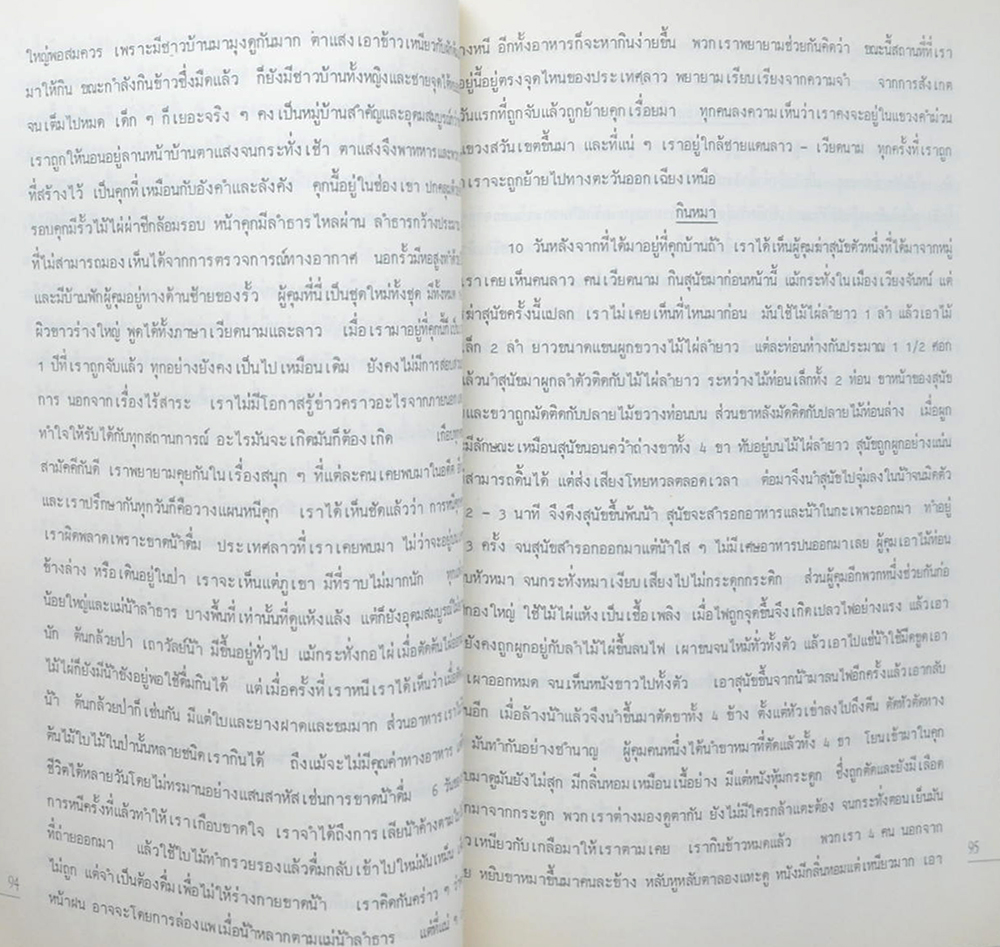 ใหญ่พอสมควร เพราะมีชาวบ้านมามุงดูกันมาก ตาแสงเอาข้าวเหนียวกับผัก
มาให้กิน ขณะกำลังกินข้าวซึ่งมืดแล้ว ก็ยังมีชาวบ้านทั้งหญิงและชายจุดไต้
จนเต็มไปหมด เด็ก ๆ ก็เยอะจริง ๆ คงเป็นหมู่บ้านสำคัญและอุดมสมบูรณ์
เราถูกให้นอนอยู่ลานหน้าบ้านตาแสงจนกระทั่งเช้า ตาแสงจึงพาทหารและ
ที่สร้างไว้ เป็นคุกที่เหมือนกับอังคำและลังคัง คุกนี้อยู่ในช่องเขา ปกคลุม
รอบคุกมีรั้วไม้ไผ่ผ่าซีกล้อมรอบ หน้าคุกมีลำธารไหลผ่าน ลำธารกว้างประมาณ
ที่ไม่สามารถมองเห็นได้จากการตรวจการณ์ทางอากาศ นอกรั้วมีหอสูง
และมีบ้านพักผู้คุมอยู่ทางด้านซ้ายของรั้ว ผู้คุมที่นี่เป็นชุดใหม่ทั้งชุด มีทั้งหมด
ผิวขาวร่างใหญ่ พูดได้ทั้งภาษาเวียดนามและลาว เมื่อเรามาอยู่ที่คุกนี้ก็เป็น
1 ปีที่เราถูกจับแล้ว ทุกอย่างยังคงเป็นไปเหมือนเดิม ยังคงไม่มีการสอบสวน
การ นอกจากเรื่องไร้สาระ เราไม่มีโอกาสรู้ข่าวคราวอะไรจากภายนอก
ทำใจให้รับได้กับทุกสถานการณ์ อะไรมันจะเกิดมันก็ต้องเกิด เกือบทุก
สามัคคีกันดี เราพยายามคุยกันในเรื่องสนุก ๆ ที่แต่ละคนเคยพบมาในอดีต
และเราปรึกษากันทุกวันก็คือวางแผนหนีคุก เราได้เห็นชัดแล้วว่า การหนีคุก
เราผิดพลาดเพราะขาดน้ำดื่ม ประเทศลาวที่เราเคยพบมา ไม่ว่าจะอยู่บน
ข้างล่าง หรือเดินอยู่ในป่า เราจะเห็นแต่ภูเขา มีที่ราบไม่มากนัก
น้อยใหญ่และแม่น้ำลำธาร บางพื้นที่เท่านั้นที่ดูแห้งแล้ง แต่ก็ยังอุดมสมบูรณ์
นัก ต้นกล้วยป่า เถาวัลย์น้ำ มีขึ้นอยู่ทั่วไป แม้กระทั่งกอไผ่เมื่อตัดต้นไผ่ออก
ไม้ไผ่ก็ยังมีน้ำขังอยู่พอใช้ดื่มกินได้ แต่เมื่อครั้งที่เราหนี เราได้เห็นว่าเมื่อ
น้ำ ต้นกล้วยป่าก็เช่นกัน มีแต่ใบและยางฝาดและขมมาก ส่วนอาหาร
ต้นไม้ใบไม้ในป่านั้นหลายชนิดเรากินได้ ถึงแม้จะไม่มีคุณค่าทางอาหาร
ชีวิตได้หลายวันโดยไม่ทรมานอย่างแสนสาหัสเช่นการขาดน้ำดื่ม 6 วันของ
การหนีครั้งที่แล้วทำให้เราเกือบขาดใจ เราจำได้ถึงการเลียน้ำค้างตาม
ที่ถ่ายออกมา แล้วใช้ใบไม้ทำกรวยรองแล้วดื่มกลับเข้าไปใหม่มันเหม็น
ไม่ถูก แต่จำเป็นต้องดื่มเพื่อไม่ให้ร่างกายขาดน้ำ เราคิดกันคร่าว ๆ
หน้าฝน อาจจะโดยการล่องแพเมื่อน้ำหลากตามแม่น้ำลำธาร แต่ที่แน่ ๆ
94
างหนี อีกทั้งอาหารก็จะหากินง่ายขึ้น พวกเราพยายามช่วยกันคิดว่า ขณะนี้สถานที่ที่เรา
อยู่นี้อยู่ตรงจุดไหนของประเทศลาว พยายามเรียบเรียงจากความจำ จากการสังเกต
วันแรกที่ถูกจับแล้วถูกย้ายคุกเรื่อยมา ทุกคนลงความเห็นว่าเราคงจะอยู่ในแขวงคำม่วน
แขวงสวันเขตขึ้นมา และที่แน่ ๆ เราอยู่ใกล้ชายแดนลาว - เวียดนาม ทุกครั้งที่เราถูก
เราจะถูกย้ายไปทางตะวันออกเฉียงเหนือ
กินหมา
10 วันหลังจากที่ได้มาอยู่ที่คุกบ้านถ้ำ เราได้เห็นผู้คุมฆ่าสุนัขตัวหนึ่งที่ได้มาจากหมู่
เราเคยเห็นคนลาว คนเวียดนาม กินสุนัขมาก่อนหน้านี้ แม้กระทั่งในเมืองเวียงจันทน์ แต่
ฆ่าสุนัขครั้งนี้แปลก เราไม่เคยเห็นที่ไหนมาก่อน มันใช้ไม้ไผ่ลำยาว 1 ลำ แล้วเอาไม้
เล็ก 2 ลำ ยาวขนาดแขนผูกขวางไม้ไผ่ลำยาว แต่ละท่อนห่างกันประมาณ 1 1/2 ศอก
แล้วนำสุนัขมาผูกลำตัวติดกับไม้ไผ่ลำยาว ระหว่างไม้ท่อนเล็กทั้ง 2 ท่อน ขาหน้าของสุนัข
และขวาถูกมัดติดกับปลายไม้ขวางท่อนบน ส่วนขาหลังมัดติดกับปลายไม้ท่อนล่าง เมื่อผูก
มีลักษณะเหมือนสุนัขนอนคว่ำถ่างขาทั้ง 4 ขา ทับอยู่บนไม้ไผ่ลำยาว สุนัขถูกผูกอย่างแน่น
สามารถดิ้นได้ แต่ส่งเสียงโหยหวลตลอดเวลา ต่อมาจึงนำสุนัขไปจุ่มลงในน้ำจนมิดตัว
2 - 3 นาที จึงดึงสุนัขขึ้นพ้นน้ำ สุนัขจะสำรอกอาหารและน้ำในกะเพาะออกมา ทำอยู่
3 ครั้ง จนสุนัขสำรอกออกมาแต่น้ำใส ๆ ไม่มีเศษอาหารปนออกมาเลย ผู้คุมเอาไม้ท่อน
บหัวหมา จนกระทั่งหมาเงียบเสียงไปไม่กระดุกกระดิก ส่วนผู้คุมอีกพวกหนึ่งช่วยกันก่อ
กองใหญ่ ใช้ไม้ไผ่แห้งเป็นเชื้อเพลิง เมื่อไฟถูกจุดขึ้นจึงเกิดเปลวไฟอย่างแรง แล้วเอา
ยังคงถูกผูกอยู่กับลำไม้ไผ่ขึ้นลนไฟ เผาขนจนไหม้ทั่วทั้งตัว แล้วเอาไปแช่น้ำใช้มีดขูดเอา
เผาออกหมด จนเห็นหนังขาวไปทั้งตัว เอาสุนัขขึ้นจากน้ำมาลนไฟอีกครั้งแล้วเอากลับ
นอีก เมื่อล้างน้ำแล้วจึงนำขึ้นมาตัดขาทั้ง 4 ข้าง ตั้งแต่หัวเข่าลงไปถึงตีน ตัดหัวตัดหาง
มันทำกันอย่างชำนาญ ผู้คุมคนหนึ่งได้นำขาหมาที่ตัดแล้วทั้ง 4 ขา โยนเข้ามาในคุก
บมาดูมันยังไม่สุก มีกลิ่นหอมเหมือนเนื้อย่าง มีแต่หนังหุ้มกระดูก ซึ่งถูกตัดและยังมีเลือด
กมาจากกระดูก พวกเราต่างมองดูตากัน ยังไม่มีใครกล้าแตะต้อง จนกระทั่งตอนเย็นมัน
วเหนียวกับเกลือมาให้เราตามเคย เรากินข้าวหมดแล้ว พวกเรา 4 คน นอกจาก
ย หยิบขาหมาขึ้นมาคนละข้าง หลับหูหลับตาลองแทะดู หนังมีกลิ่นหอมแต่เหนียวมาก เอา
95